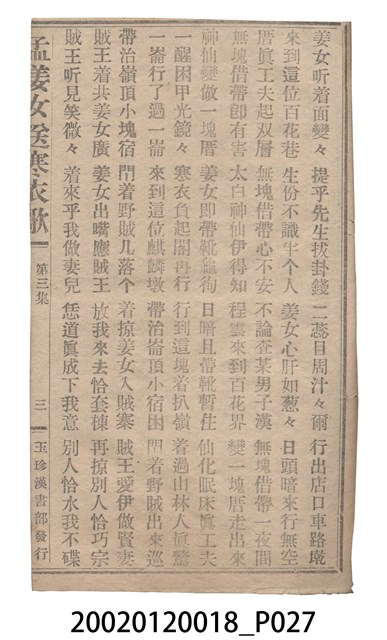 姜女听着面變々　提乎先生拔卦錢　二蕊目周汁々　爾行出店口車路墘
來到這位百花巷　生份不識半个人　姜女心肝如葱々　日頭暗來行無空
厝眞工夫起双層　無塊借帶心不安　不論查某男子漢　無塊借帶一夜間
無塊借帶卽有害　太白神仙伊得知　程雲來到百花界　變一塊厝走出來
神仙變做一塊厝　姜女卽帶靴　日暗且帶靴暫住　仙化眠床眞工夫
一醒困甲光鏡々　寒衣負起閣再行　行到這塊着扒嶺　着過山林人眞驚
一崙行了過一崙　來到這位麒麟墩　帶治嶺頂小宿困　門着野賊出來巡
帶治嶺頂小塊宿　門着野賊几落个　着掠姜女入賊寨　賊王愛伊做賢妻
賊王着共姜女廣　姜女出嘴應賊王　放我來去恰套棟　再掠別人恰巧宗
賊王听見笑微々　着來乎我做妻兒　恁道眞成下我意　別人恰水我不碟
孟姜女送寒衣歌　第三集　三　玉珍漢書部發行
20020120018_P027